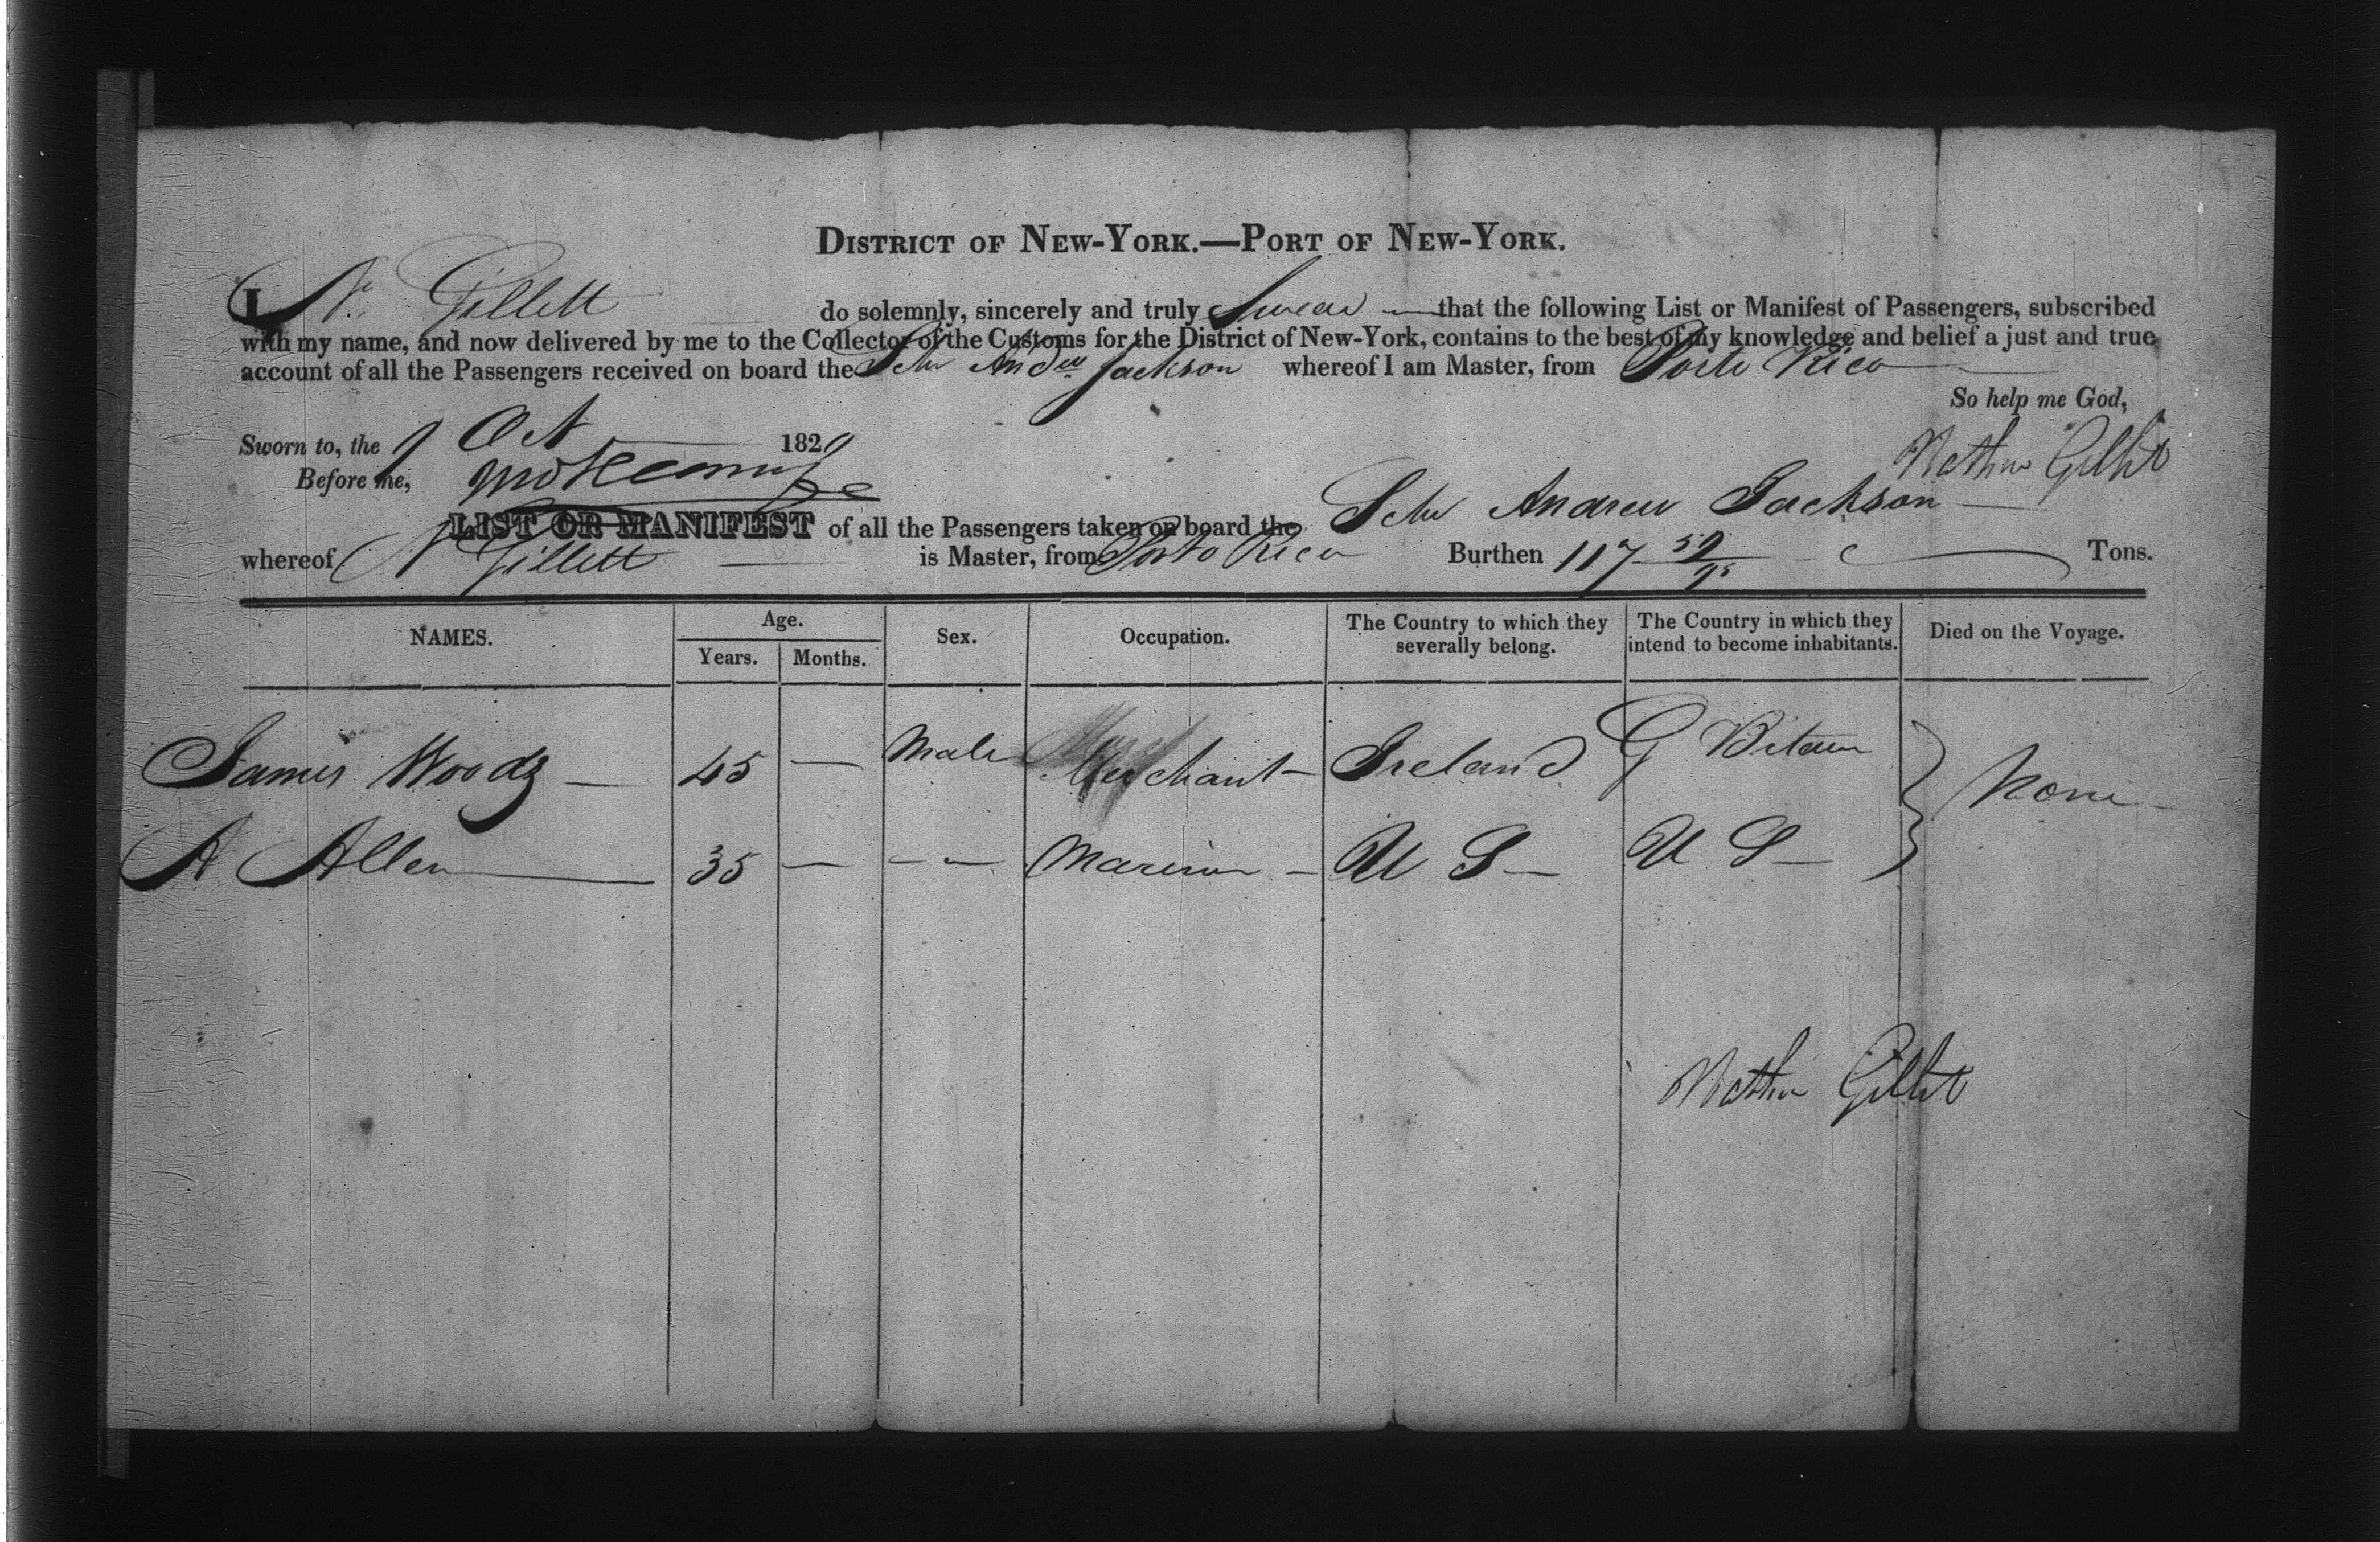 DISTRICT OF NEW-YORK.—PORT OF NEW-YORK.
I N. Gillett do solemnly, sincerely and truly Swear that the following List or Manifest of Passengers, subscribed
with my name, and now delivered by me to the Collector of the Customs for the District of New-York, contains to the best of my knowledge and belief a just and true
account of all the Passengers received on board the Schr Andew Jackson whereof I am Master, from Porto Rico
So help me God,
Sworn to, the 9 Oct 1829
Nathan Gillet
Before me,
LIST OR MANIFEST of all the Passengers taken on board the Schr Andrew Jackson
whereof N Gillett is Master, from Porto Rico Burthen 117 59/95 Tons.
NAMES. Age. Sex. Occupation. The Country to which they severally belong. The Country in which they intend to become inhabitants. Died on the Voyage.
Years. Months.
James Woods — 45 — Male Merchant — Ireland G Bitain None
A Allen — 35 — — — Mariner — U S — U S —
Nathan Gillet